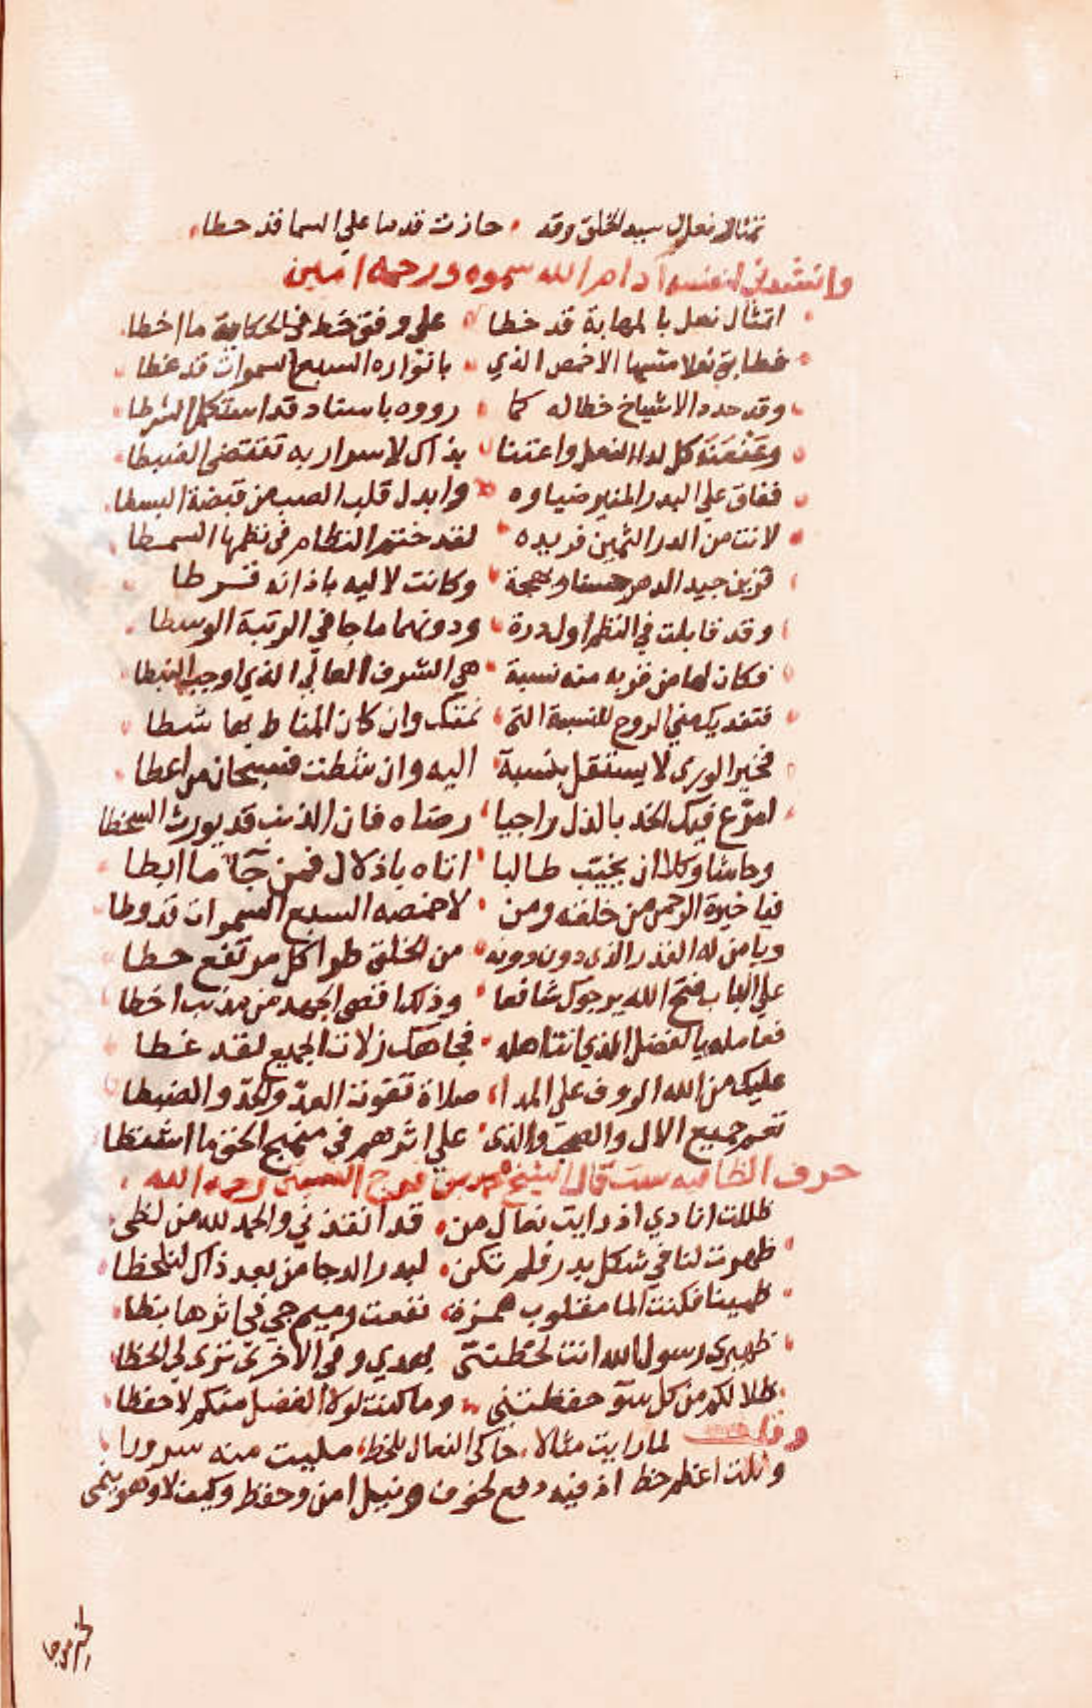 تمثال نعل سيد الخلق وقد ، حازت قدما علي السما قد حطا
وانشدني لنفسه ادام الله سموه ورحمه امين
امثال نعل بالمهابة قد خطا علي وفق خط في الحكاية ما اخطا
نعلا مسها الاخمص الذي بانواره السبع السموات قد غطا
وقد حدد الاشياخ خطاله كما رووه باسناد قد استكمل الشرطا
كل لدا النعل واعتنا بذاك لاسرار به تقتضي الضبطا
ففاق علي البدر المنير ضياوه وابدل قلب الصب من قبضة البسطا
لانت من الدر الثمين فريده لقد ختم النظام في نظمها السمطا
جيد الدهر حسنا وبهجة وكانت لاليه باذانه قرطا
وقد قابلت في النظم اول درة ودونهما ما جا في الرتبة الوسطا
فكان لها من قربه منه نسبة هي الشرف العالي الذي اوجب الغبطا
فتفديك مني الروح للنسبة التي وان كان المناط بها شطا
فخير الوري لا يستقل بنسبة اليه وان شطت فسبحان من اعطا
امرغ فيك الخد بالذل راجيا رضاه فان الذنب قد يورث السخطا
وحاشا وكلا ان يخيب طالبا اتاه باذلال فمن جآ ما ابطا
فيا خيرة الرحمن من خلقه ومن لاخمصه السبع السموات قد وطا
ويا من له القدر الذي دون دونه من الخلق طرا كل مرتفع حطا
علي الباب فتح الله يرجوك شافعا وذلك اقصي الجهد من مذنب اخطا
فعامله بالفضل الذي انت اهله فجاهك زلات الجميع لقد غطا
عليك من الله الروف علي المدا صلاة تفوت العد والحد والضبطا
تعم جميع الال والصحب والذي علي اثرهم في منهج الحق ما اشتطا
حرف الظا فيه ست قال الشيخ محمد بن فرج السبتي رحمه الله
ظللت انادي اذ رايت نعال من ، قد انقذني والحمد لله من لظي
ظهرت لنا في شكل بدر فلم تكن ، لبدر الدجا من بعد ذاك لنلحظا
ظمينا فكنت الما
ظهيري رسول الله انت لحظتني بعدي وفي الاخري تري لي الحظا
ظلالكم من كل سوٓ حفظنني وما كنت لولا الفضل منكم لاحفظا
وقلت لما رايت مثالا ، حاكي النعال بلحظ ، مليت منه سرورا
ونلت اعظم حظ اذ فيه دفع لخوف ونيل امن وحفظ وكيف لا وهو ينمي